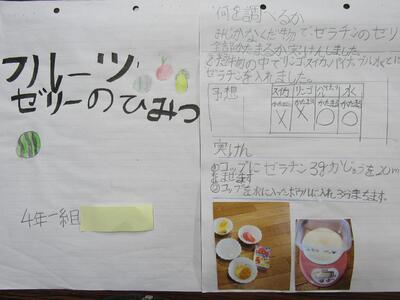 フルーツ
ゼリーのひみつ
4年一組
何を調べるか
みぢかなくだ物でゼラチンのゼリ
全部かたまるか実けんしました。
の中でリンゴスイカパイナップル水
ゼラチンを入れました。
予想
スイカ リンゴ パイン 水
× × ○ ○
実けん
①コップにゼラチン3gかじゅうを20m
まぜます
②コップを水に入ったボウルに入れ3分まちます。